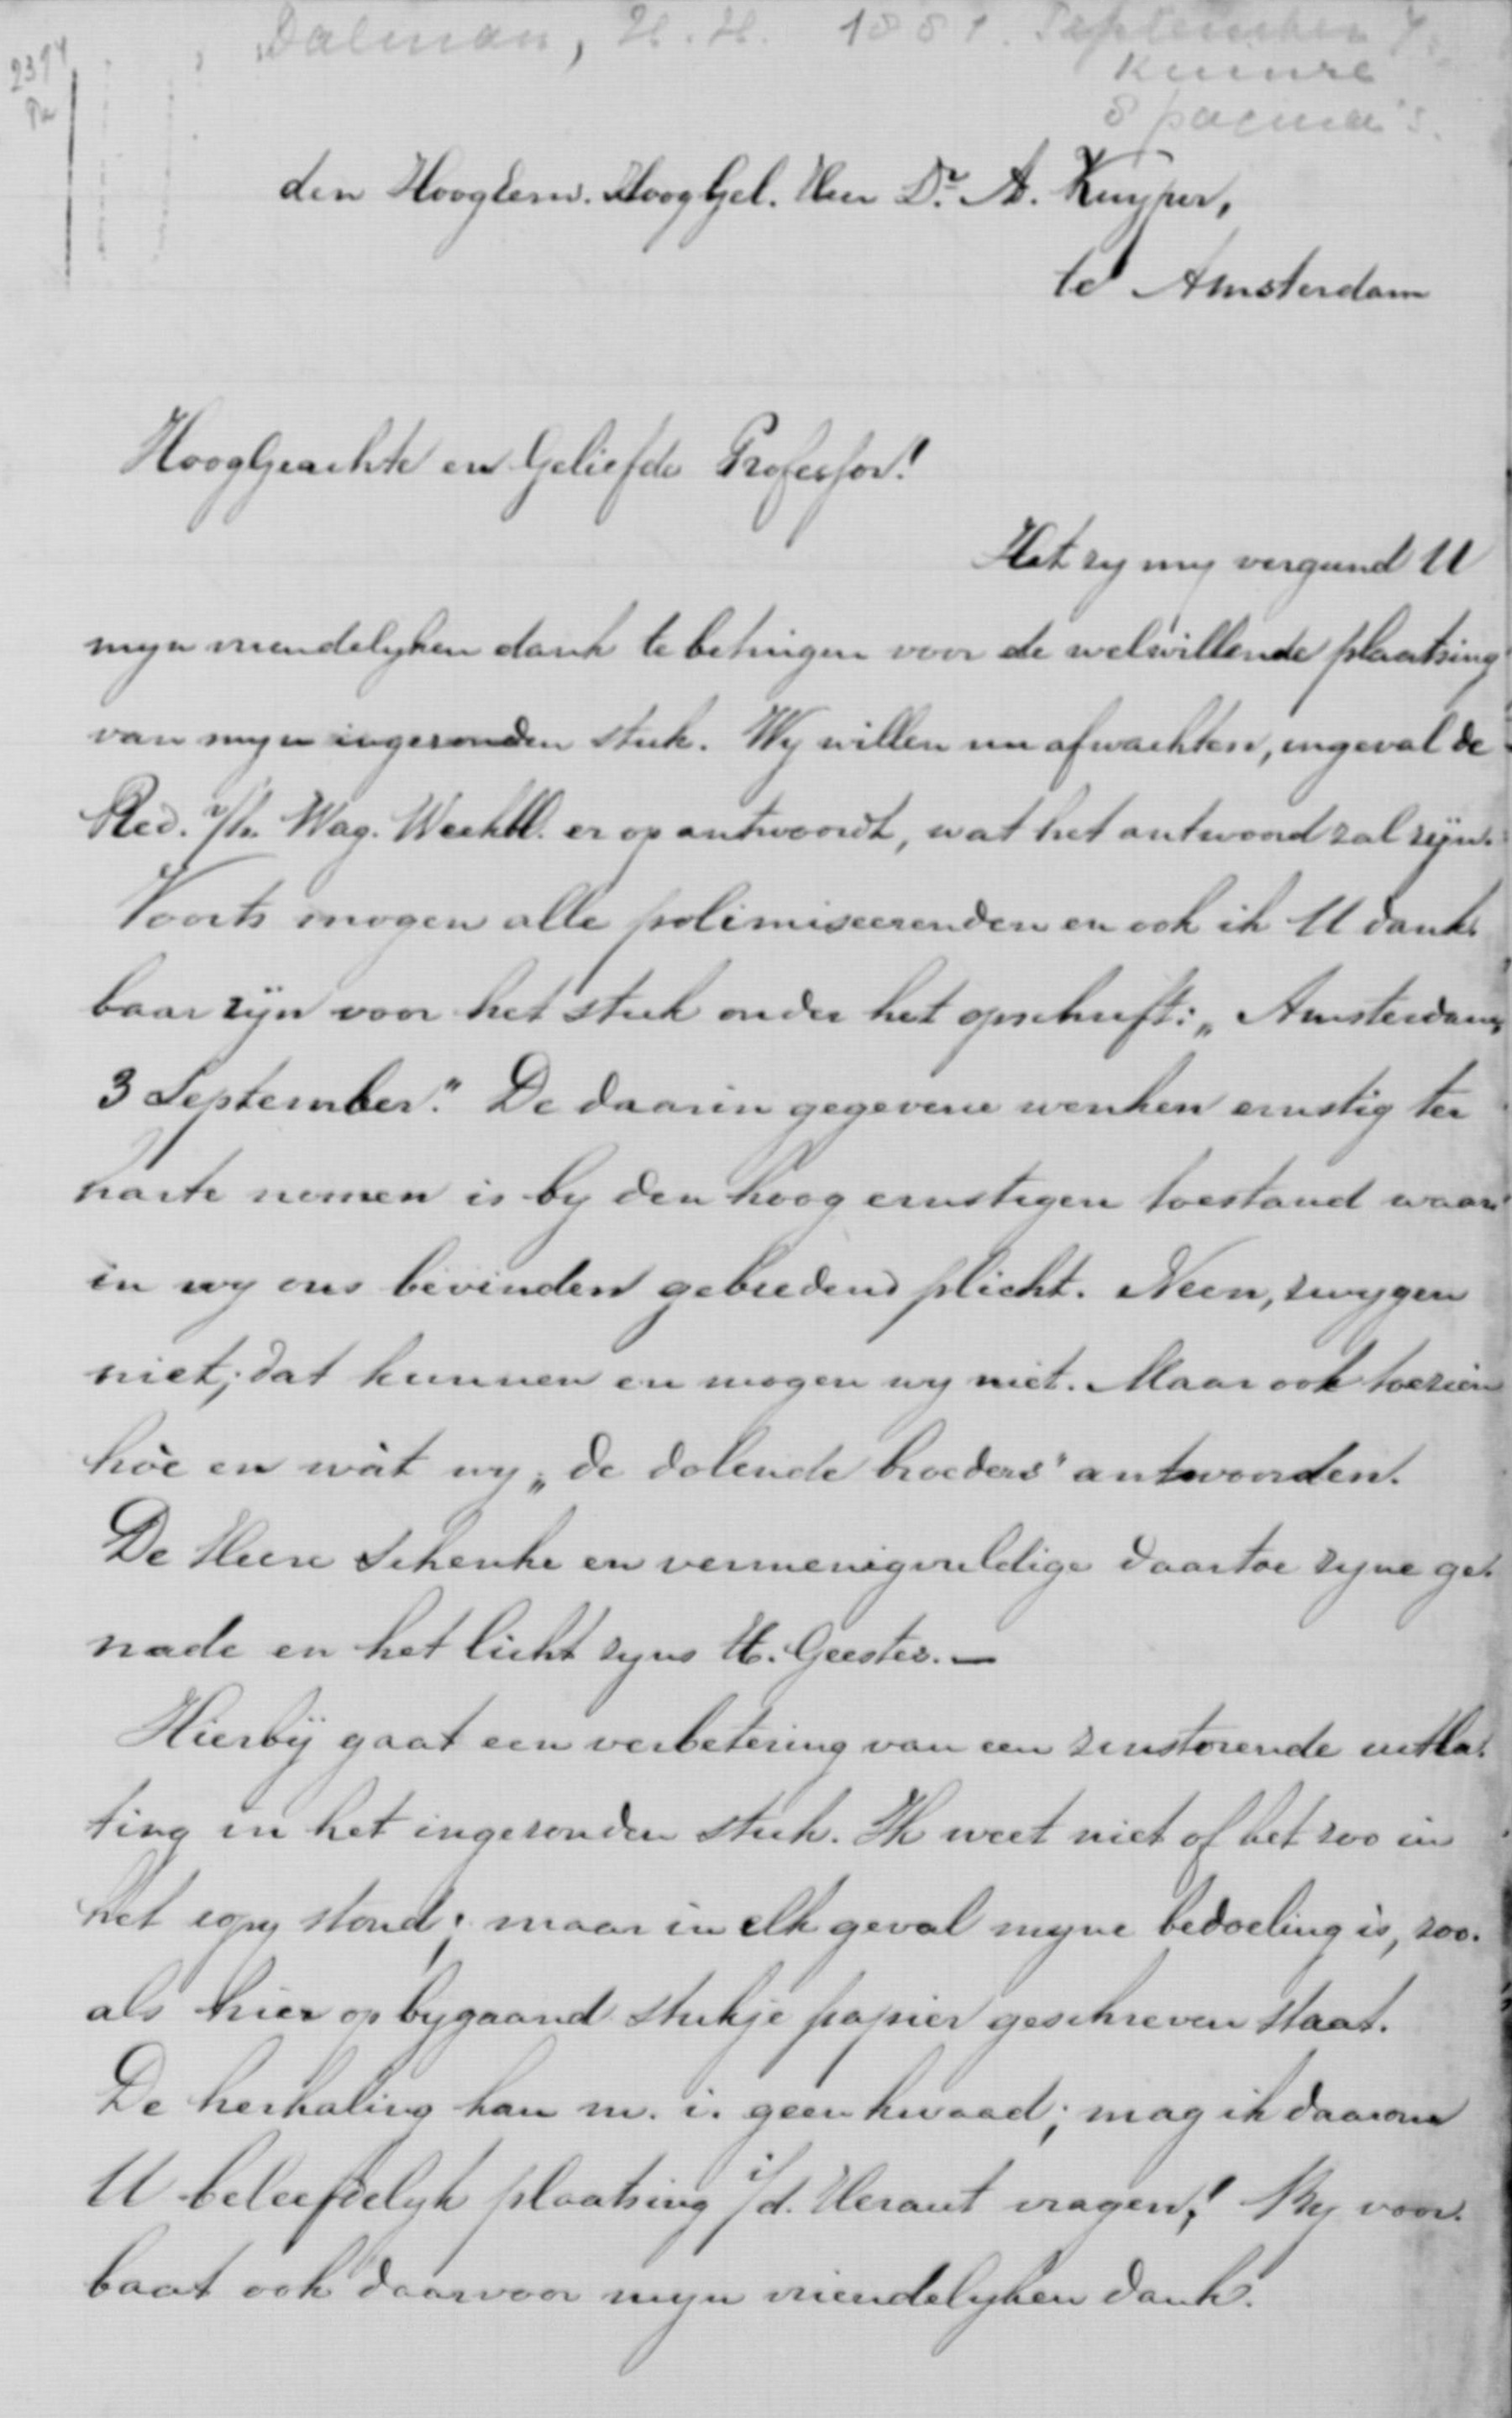 Dalman, H. H. 1881. September 7.
2394
Kuinre
8 pagina's.
den HoogEerw. HoogGel. Heer Dr. A. Kuyper,
te Amsterdam
HoogGeachte en Geliefde Professor!
Het zy my vergund U
myn vriendelyken dank te betuigen voor de welwillende plaatsing
van myn ingezonden stuk. Wy willen nu afwachten, ingeval de
Red. v/h. Wag. Weekbl. er op antwoordt, wat het antwoord zal zijn.
Voorts mogen alle polimiseerenden en ook ik U dank-
baar zijn voor het stuk onder het opschrift: „Amsterdam,
3 September." De daarin gegevene wenken ernstig ter
harte nemen is by den hoog ernstigen toestand waar-
in wy ons bevinden gebiedend plicht. Neen, zwygen
niet; dat kunnen en mogen wy niet. Maar ook toezien
hòe en wàt wy „de dolende broeders" antwoorden.
De Heere schenke en vermenigvuldige daartoe zyne ge-
nade en het licht zyns H. Geestes. —
Hierbÿ gaat een verbetering van een zinstorende uitla-
ting in het ingezonden stuk. Ik weet niet of het zoo in
het copy stond; maar in elk geval myne bedoeling is, zoo-
als hier op bygaand stukje papier geschreven staat.
De herhaling kan m. i. geen kwaad; mag ik daarom
U beleefdelyk plaatsing i/d. Heraut vragen,! By voor-
baat ook daarvoor myn vriendelyken dank.